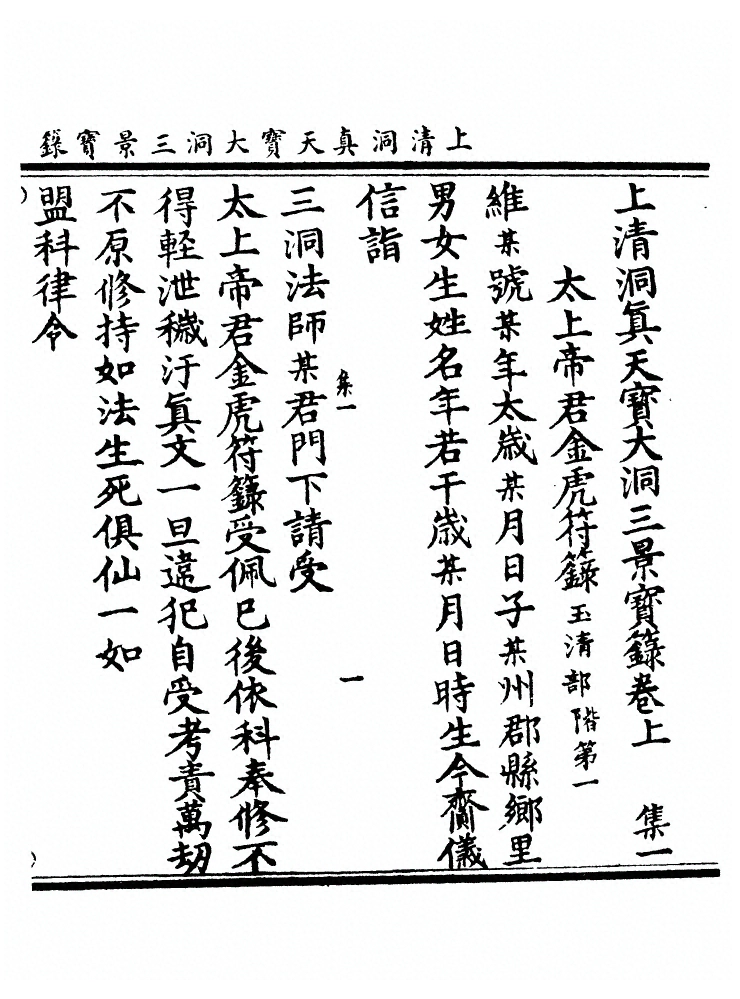 上清洞真天寶大洞三景寶籙
上清洞眞天寶大洞三景寶籙卷上　集一
太上帝君金虎符籙玉清部階第一
維某號某年太歲某月日子某州郡縣鄉里
男女生姓名年若干歲某月日時生今齎儀
信詣
集一
一
三洞法師某君門下請受
太上帝君金虎符籙受佩已後依科奉修不
得輕泄穢汙眞文一旦違犯自受考責萬劫
不原修持如法生死俱仙一如
盟科律令